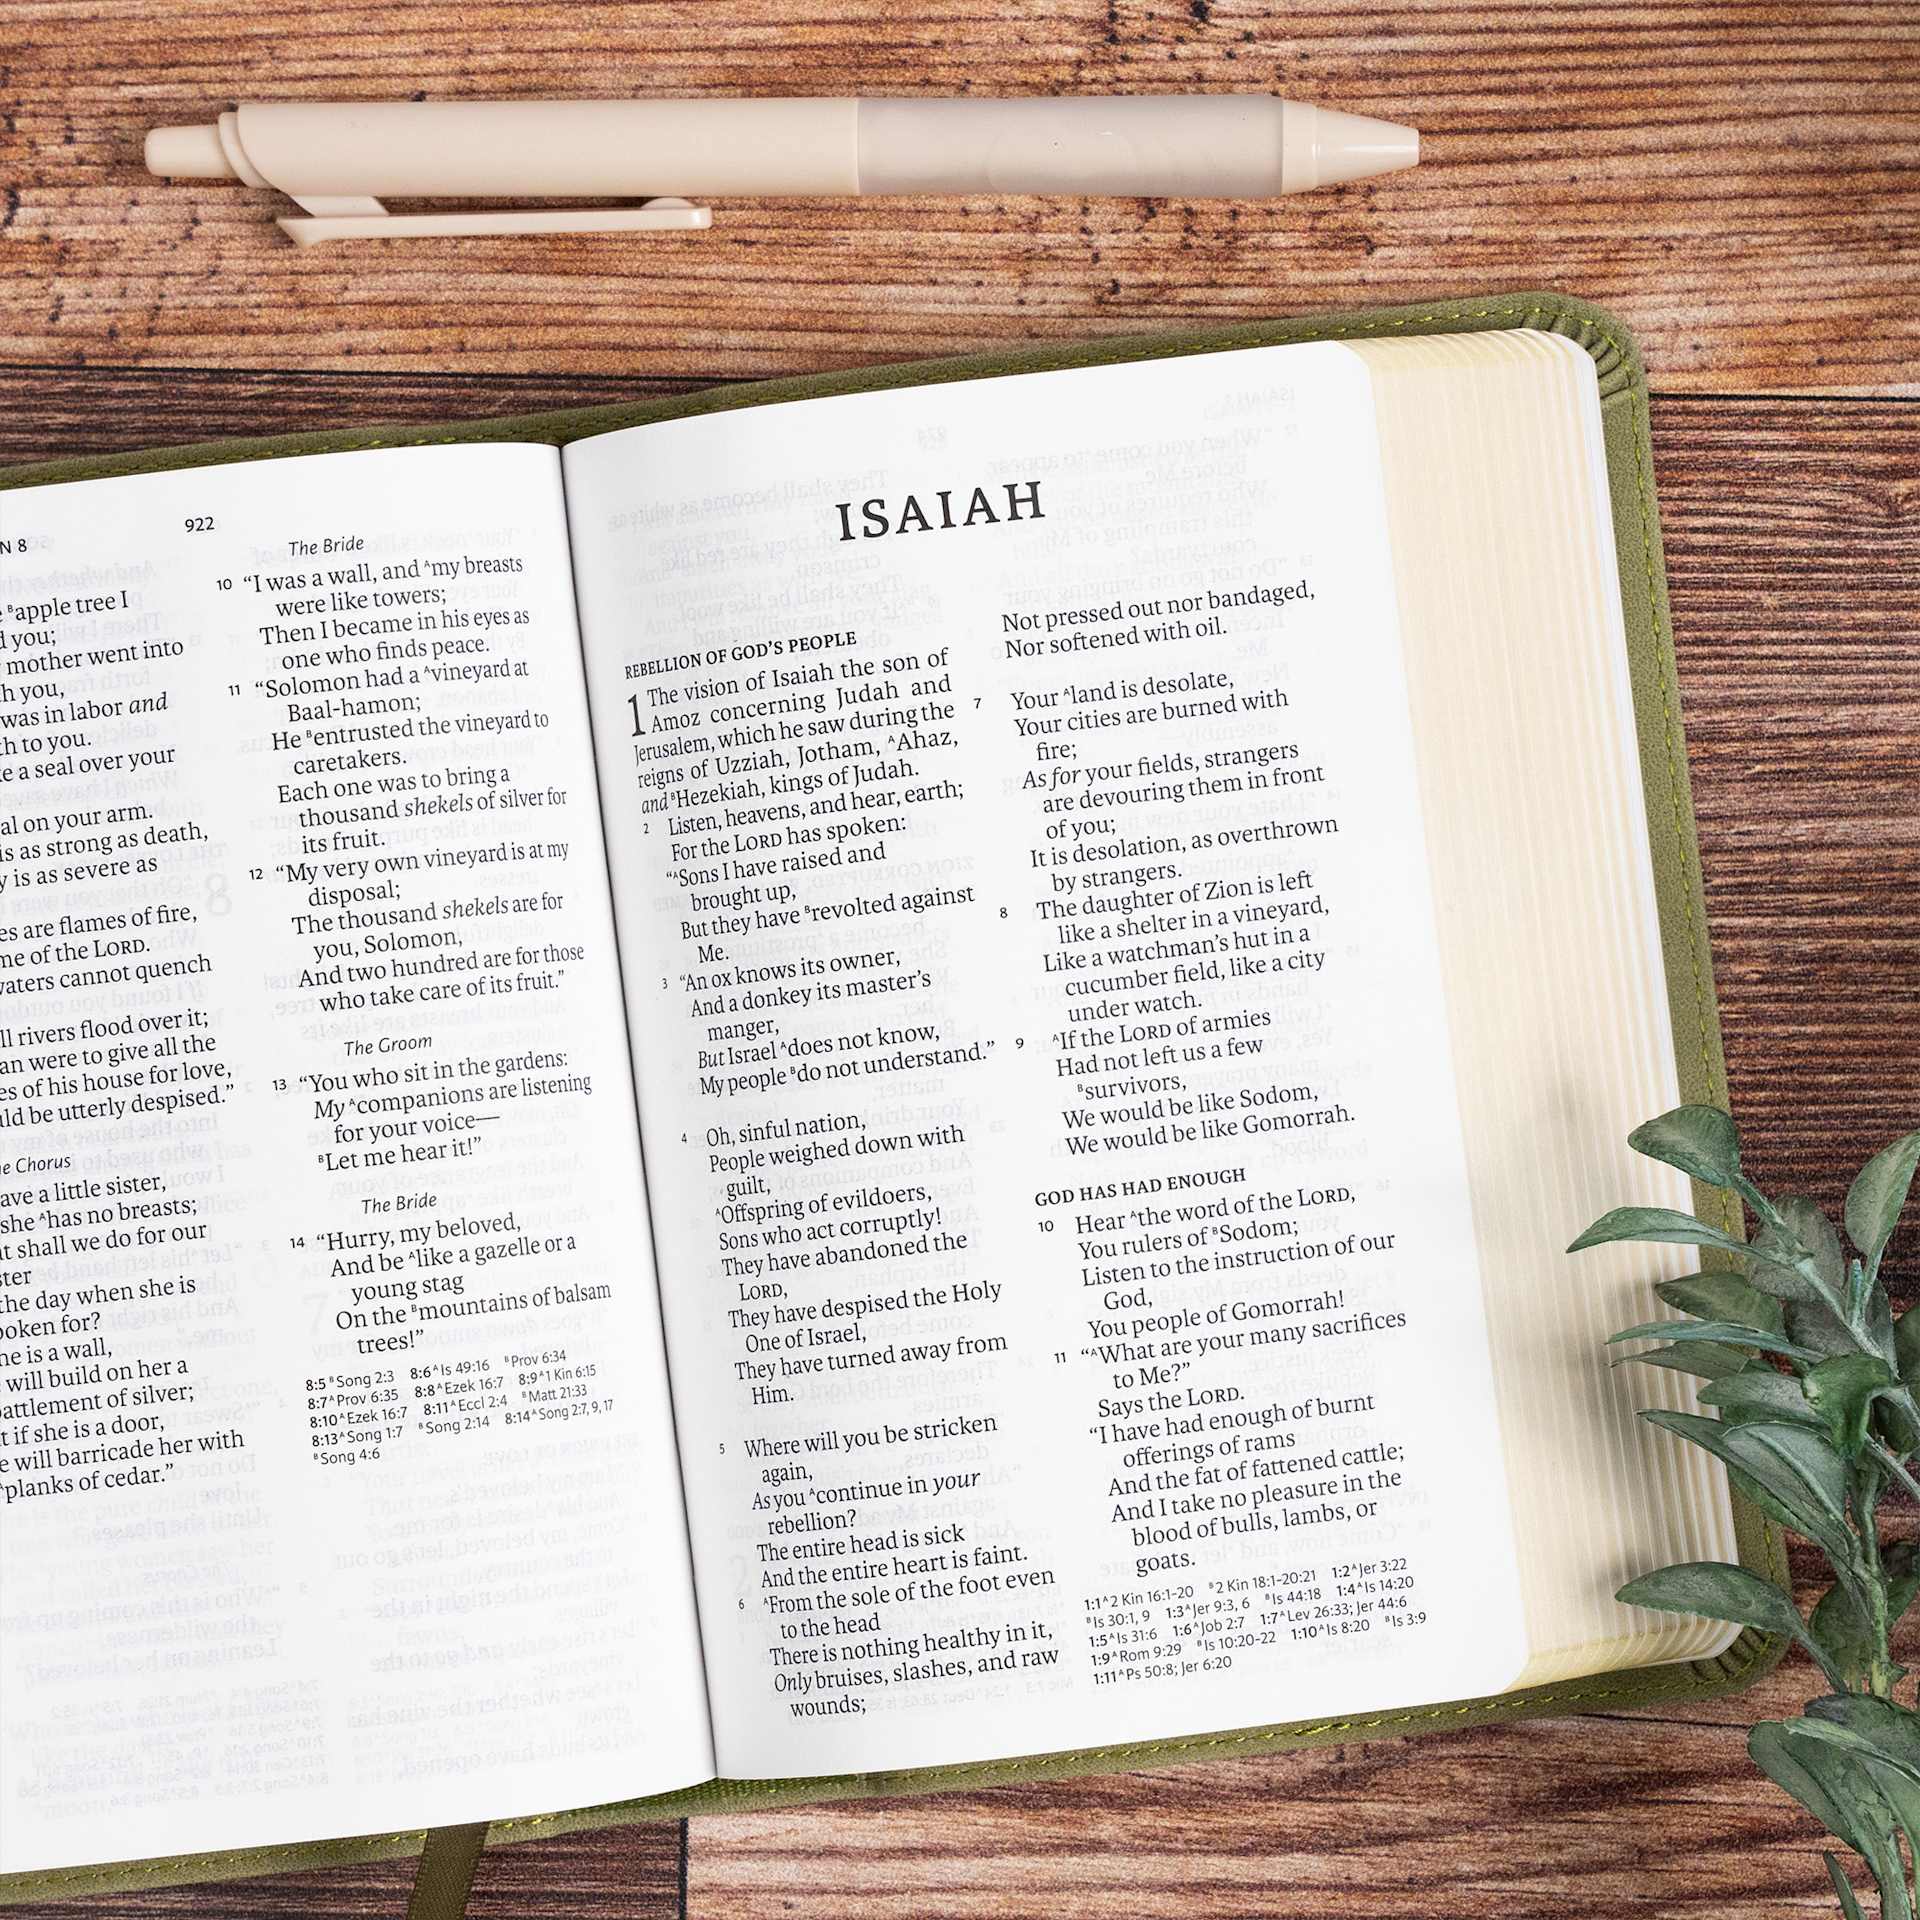 N 8
922
apple tree I
you;
mother went into
you,
was in labor and
to you.
a seal over your
on your arm.
is as strong as death,
is as severe as
are flames of fire,
of the LORD.
waters cannot quench
rivers flood over it;
were to give all the
of his house for love,
be utterly despised.”
Chorus
a little sister,
she ᴬhas no breasts;
shall we do for our
the day when she is
for?
is a wall,
will build on her a
of silver;
if she is a door,
will barricade her with
ᴬplanks of cedar.”
The Bride
10 “I was a wall, and ᴬmy breasts
were like towers;
Then I became in his eyes as
one who finds peace.
11 “Solomon had a ᴬvineyard at
Baal-hamon;
He ᴮentrusted the vineyard to
caretakers.
Each one was to bring a
thousand shekels of silver for
its fruit.
12 “My very own vineyard is at my
disposal;
The thousand shekels are for
you, Solomon,
And two hundred are for those
who take care of its fruit.”
The Groom
13 “You who sit in the gardens:
My ᴬcompanions are listening
for your voice—
ᴮLet me hear it!”
The Bride
14 “Hurry, my beloved,
And be ᴬlike a gazelle or a
young stag
On the ᴮmountains of balsam
trees!”
8:5 ᴮSong 2:3 8:6 ᴬIs 49:16 ᴮProv 6:34
8:7 ᴬProv 6:35 8:8 ᴬEzek 16:7 8:9 ᴬ1 Kin 6:15
8:10 ᴬEzek 16:7 8:11 ᴬEccl 2:4 ᴮMatt 21:33
8:13 ᴬSong 1:7 ᴮSong 2:14 8:14 ᴬSong 2:7, 9, 17
ᴮSong 4:6
ISAIAH
REBELLION OF GOD’S PEOPLE
1 The vision of Isaiah the son of
Amoz concerning Judah and
Jerusalem, which he saw during the
reigns of Uzziah, Jotham, ᴬAhaz,
and ᴮHezekiah, kings of Judah.
2 Listen, heavens, and hear, earth;
For the LORD has spoken:
“ᴬSons I have raised and
brought up,
But they have ᴮrevolted against
Me.
3 “An ox knows its owner,
And a donkey its master’s
manger,
But Israel ᴬdoes not know,
My people ᴮdo not understand.”
4 Oh, sinful nation,
People weighed down with
guilt,
ᴬOffspring of evildoers,
Sons who act corruptly!
They have abandoned the
LORD,
They have despised the Holy
One of Israel,
They have turned away from
Him.
5 Where will you be stricken
again,
As you ᴬcontinue in your
rebellion?
The entire head is sick
And the entire heart is faint.
6 ᴬFrom the sole of the foot even
to the head
There is nothing healthy in it,
Only bruises, slashes, and raw
wounds;
Not pressed out nor bandaged,
Nor softened with oil.
7 Your ᴬland is desolate,
Your cities are burned with
fire;
As for your fields, strangers
are devouring them in front
of you;
It is desolation, as overthrown
by strangers.
8 The daughter of Zion is left
like a shelter in a vineyard,
Like a watchman’s hut in a
cucumber field, like a city
under watch.
9 ᴬIf the LORD of armies
Had not left us a few
ᴮsurvivors,
We would be like Sodom,
We would be like Gomorrah.
GOD HAS HAD ENOUGH
10 Hear ᴬthe word of the LORD,
You rulers of ᴮSodom;
Listen to the instruction of our
God,
You people of Gomorrah!
11 “ᴬWhat are your many sacrifices
to Me?”
Says the LORD.
“I have had enough of burnt
offerings of rams
And the fat of fattened cattle;
And I take no pleasure in the
blood of bulls, lambs, or
goats.
1:1 ᴬ2 Kin 16:1-20 ᴮ2 Kin 18:1-20:21 1:2 ᴬJer 3:22
ᴮIs 30:1, 9 1:3 ᴬJer 9:3, 6 ᴮIs 44:18 1:4 ᴬIs 14:20
1:5 ᴬIs 31:6 1:6 ᴬJob 2:7 1:7 ᴬLev 26:33; Jer 44:6
1:9 ᴬRom 9:29 ᴮIs 10:20-22 1:10 ᴬIs 8:20 ᴮIs 3:9
1:11 ᴬPs 50:8; Jer 6:20